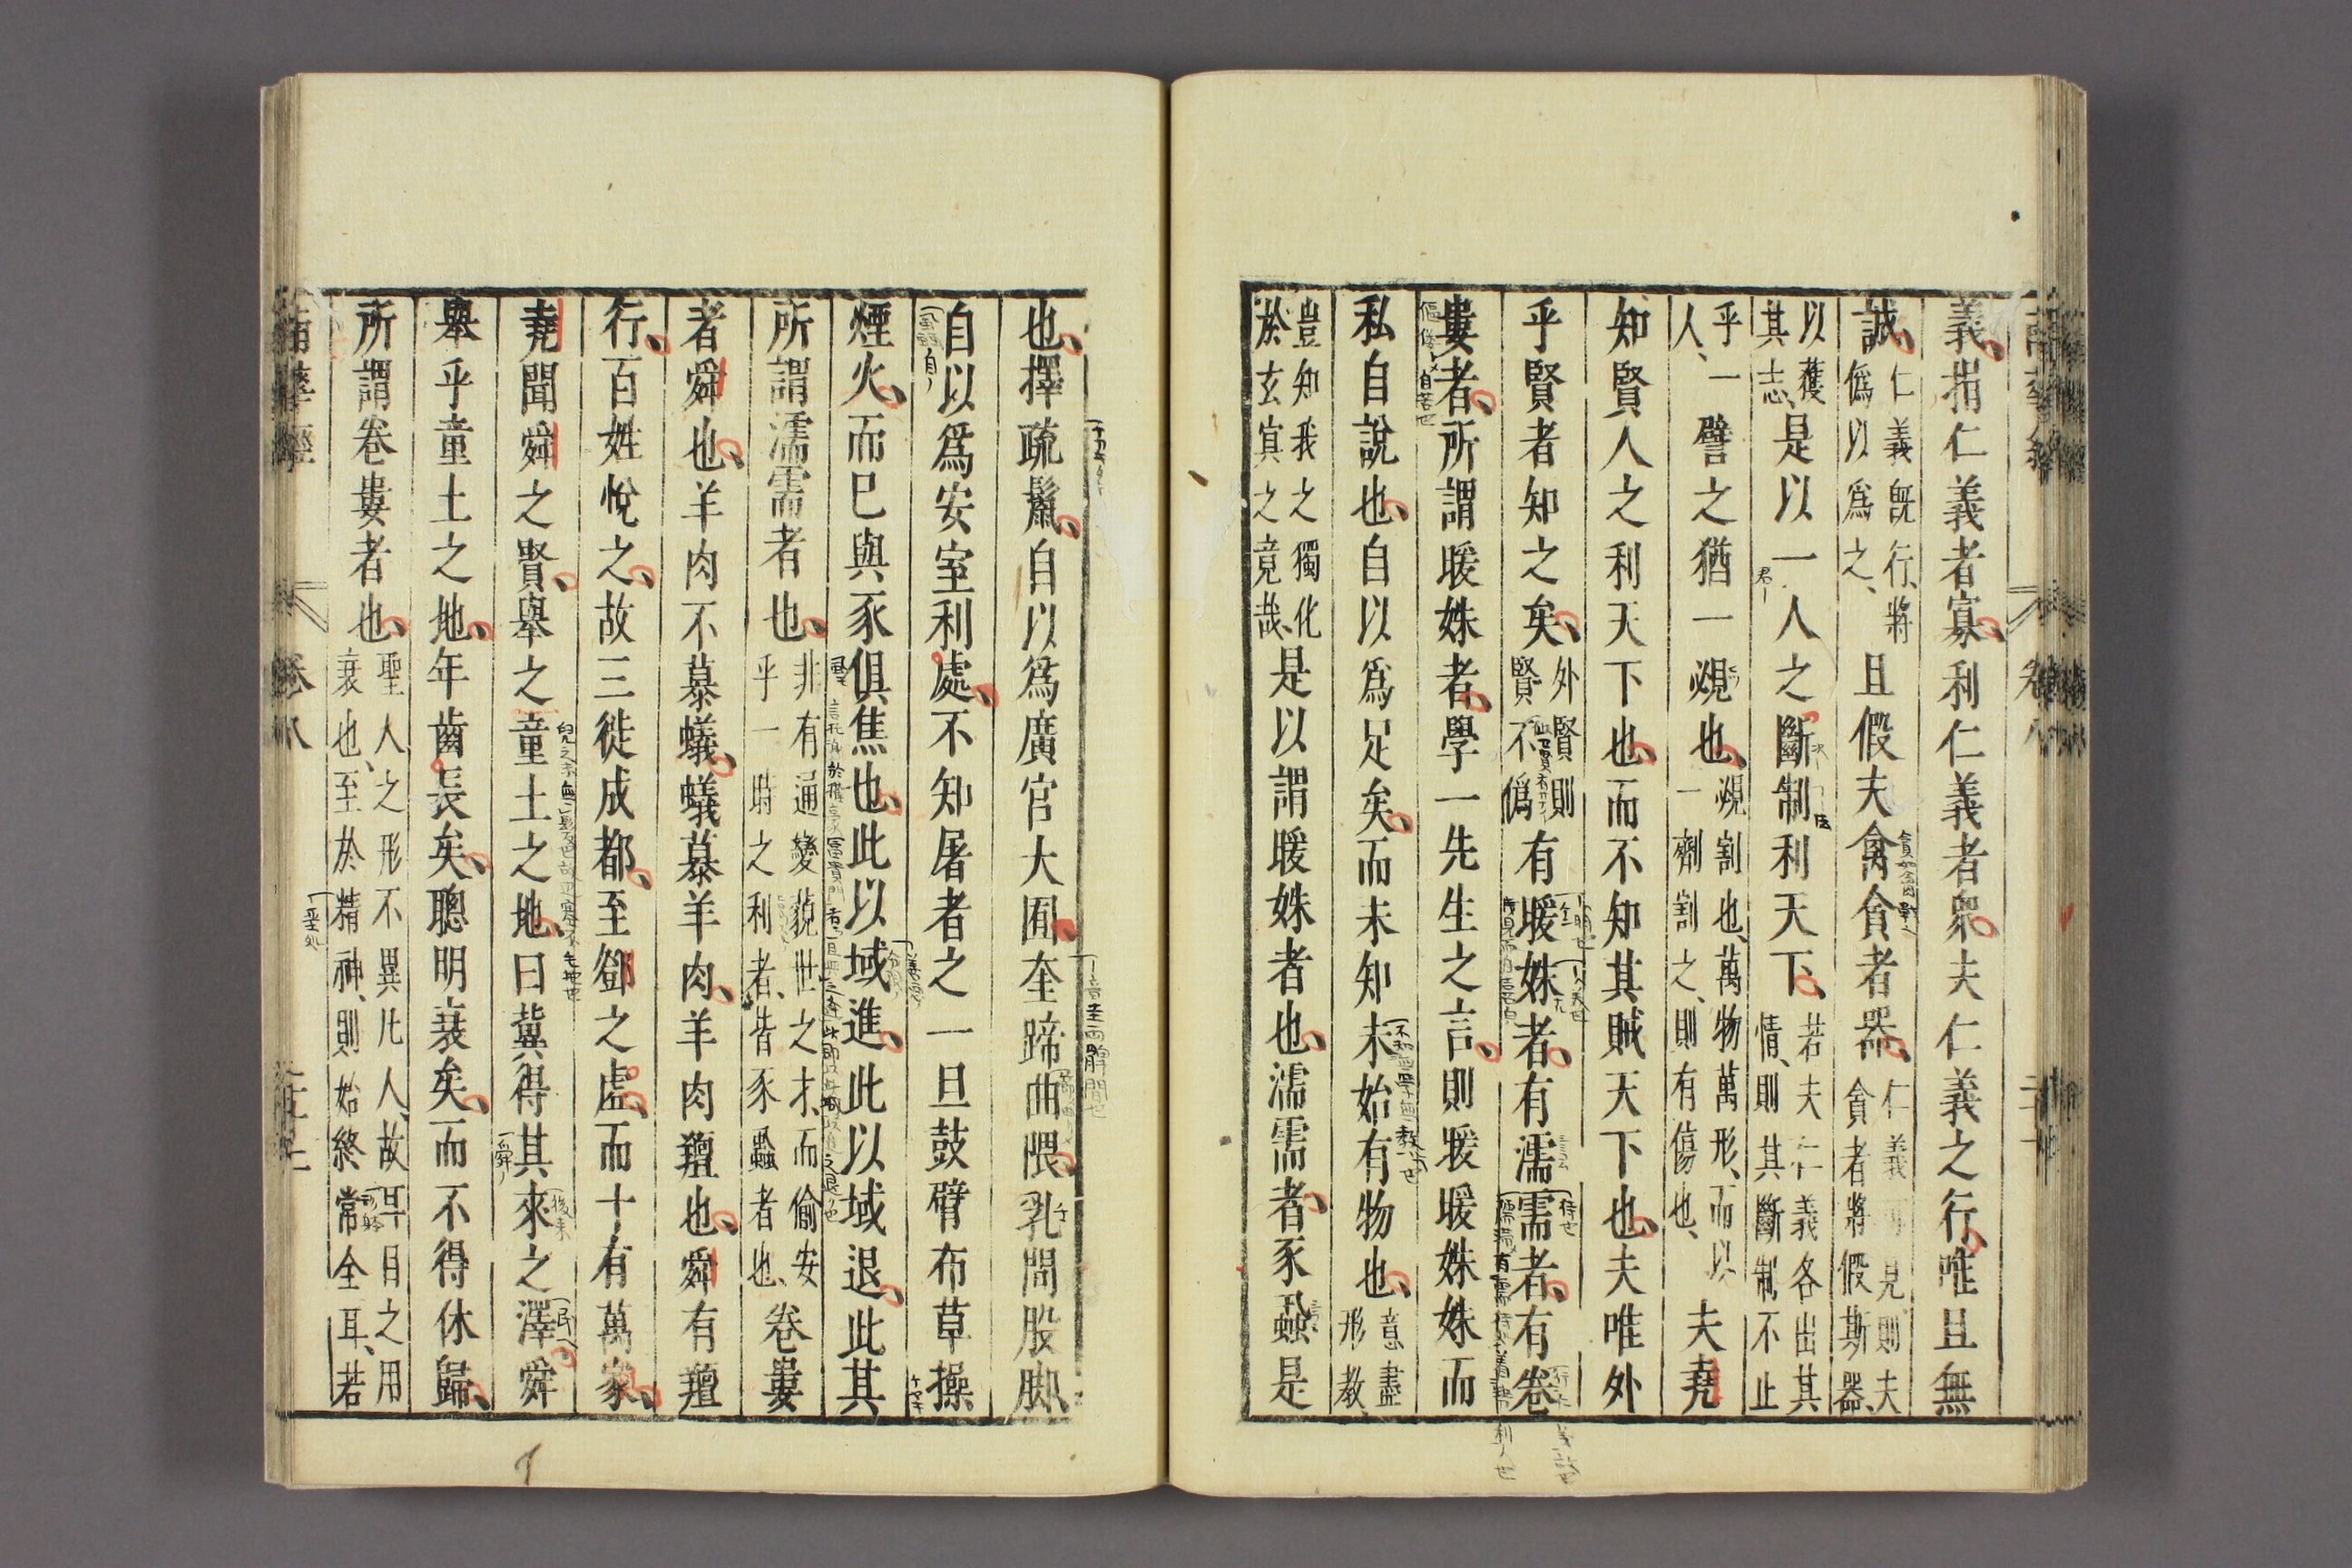 義捐仁義者寡利仁義者衆夫仁義之行唯且無
誠仁義既行、將偽以爲之、且假夫禽貪者器仁義可見、則夫貪者將假斯器、
以獲其志、是以一人之斷制利天下若夫仁義各出其情、則其斷制不止
乎一人、譬之猶一覕也覕割也、萬物萬形、而以一劑割之、則有傷也、夫堯
知賢人之利天下也而不知其賊天下也夫唯外
乎賢者知之矣外賢則賢不偽有暖姝者有濡需者有卷
婁者所謂暖姝者學一先生之言則暖暖姝姝而
私自說也自以爲足矣而未知未始有物也意盡形教、
豈知我之獨化於玄冥之竟哉、是以謂暖姝者也濡需者豕蝨是
也擇疏鬣自以爲廣宮大囿奎蹄曲隈乳間股脚
自以爲安室利處不知屠者之一旦鼓臂布草操
煙火而已與豕俱焦也此以域進此以域退此其
所謂濡需者也非有通變邈世之才、而偷安乎一時之利者、皆豕蝨者也、卷婁
者舜也羊肉不慕蟻蟻慕羊肉羊肉羶也舜有羶
行百姓悅之故三徙成都至鄧之虛而十有萬家
堯聞舜之賢舉之童土之地曰冀得其來之澤舜
舉乎童土之地年齒長矣聰明衰矣而不得休歸
所謂卷婁者也聖人之形不異凡人、故耳目之用衰也、至於精神、則始終常全耳、若
南華經 卷八